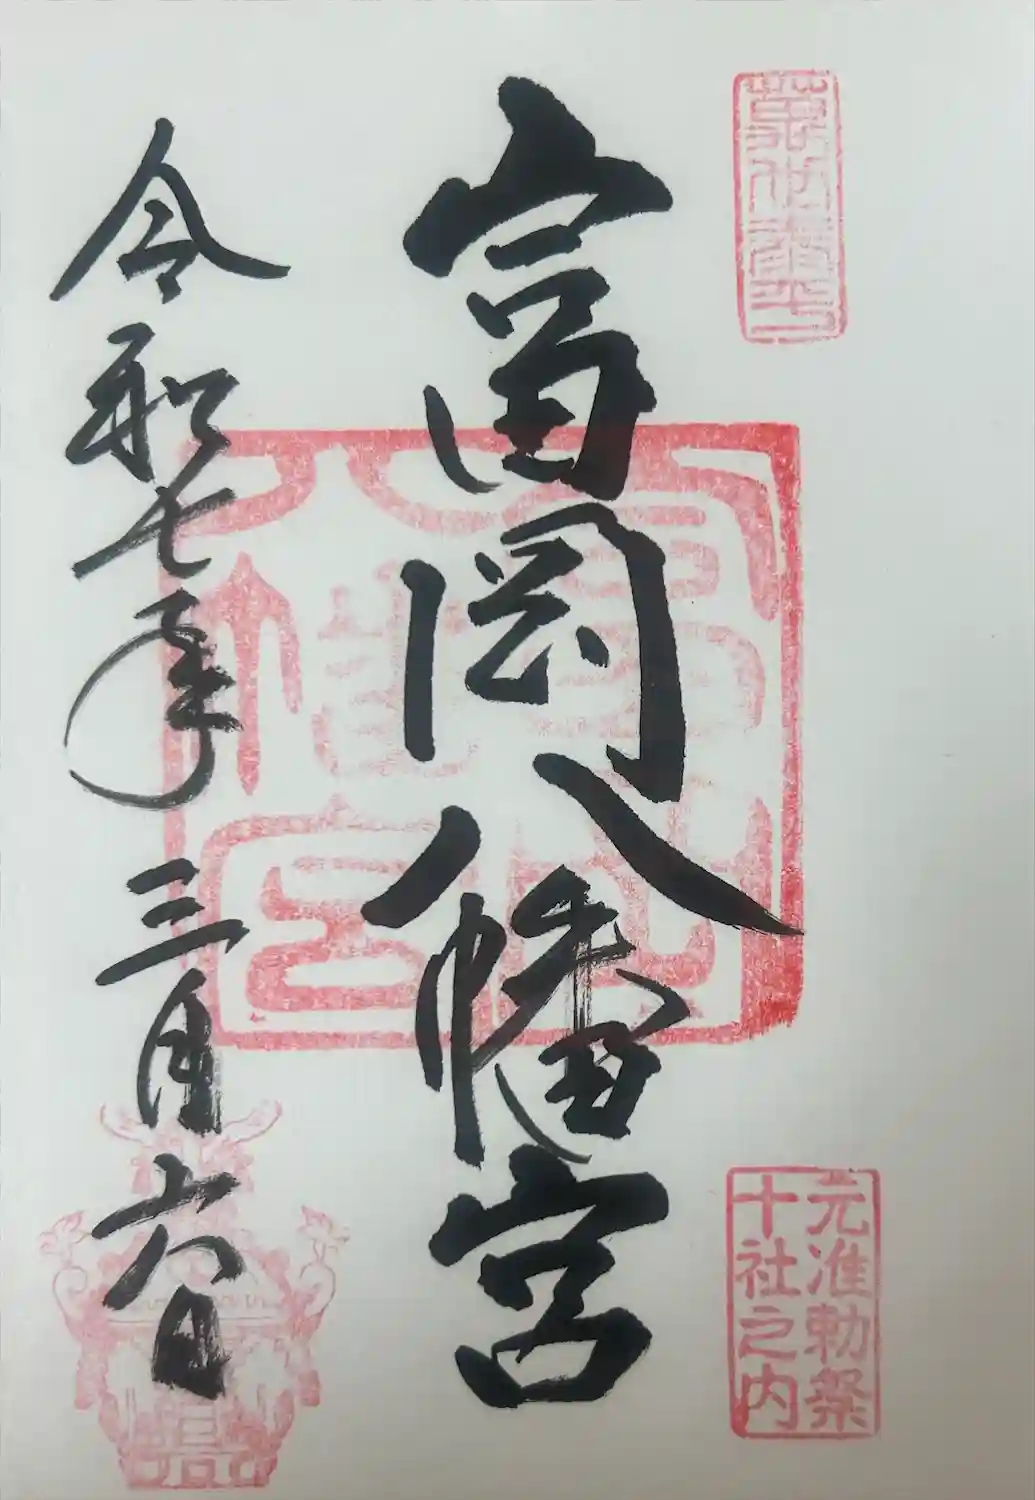 元准勅祭
十社之内
富岡八幡宮
令和七年三月六日